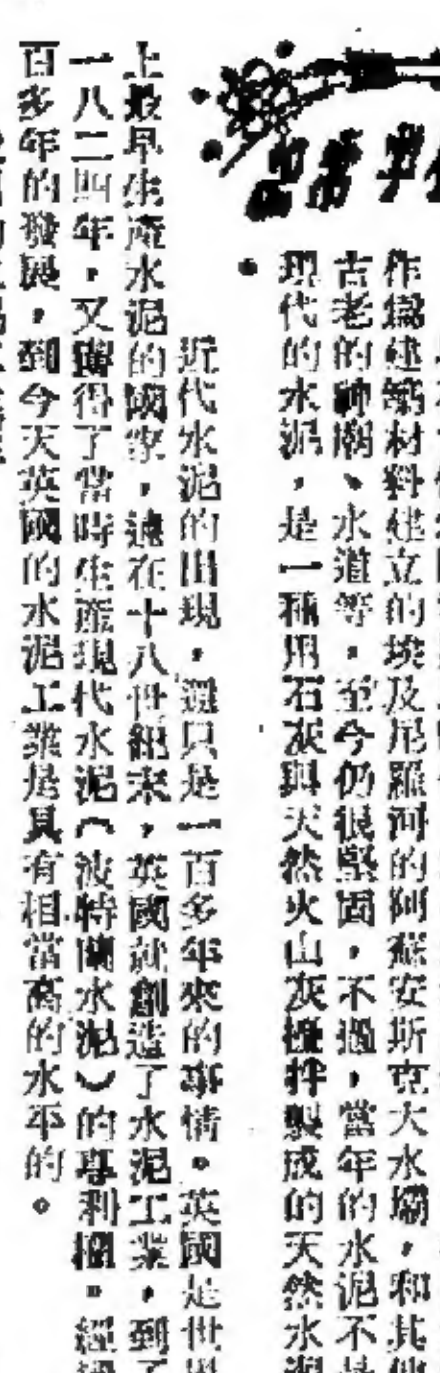 作為建築材料建立的埃及尼羅河的阿蘇安斯克大水壩,和其他
古老的神廟、水道等,至今仍很堅固,不過,當年的水泥不是
現代的水泥,是一種用石灰與天然火山灰攪拌製成的天然水泥
。
近代水泥的出現,還只是一百多年來的事情。英國是世界
上最早生產水泥的國家,遠在十八世紀末,英國就創造了水泥工業,到了
一八二四年,又獲得了當時生產現代水泥(波特蘭水泥)的專利權。經過
百多年的發展,到今天英國的水泥工業是具有相當高的水平的。